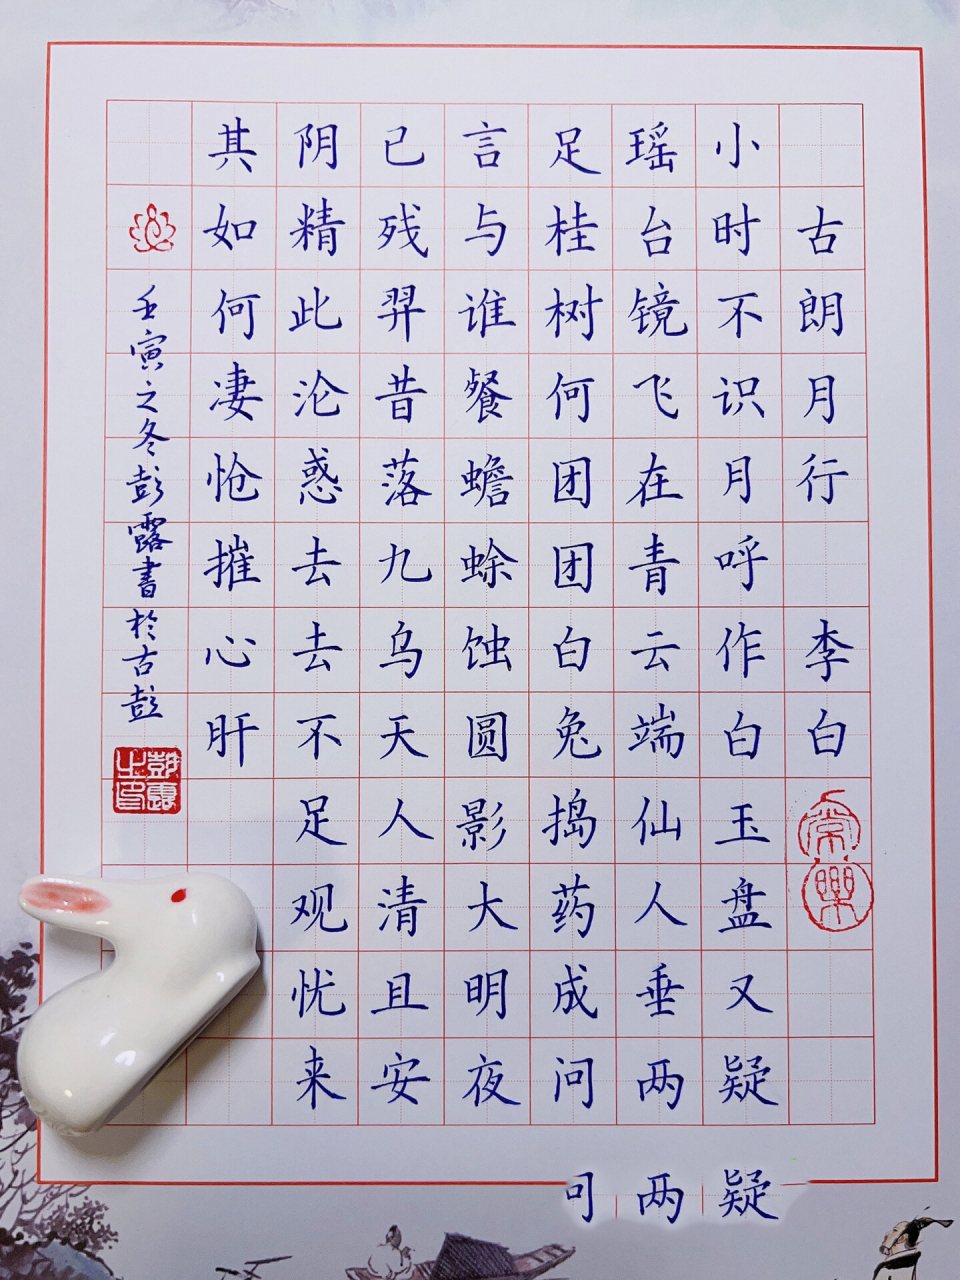 古朗月行 李白
常樂
小时不识月呼作白玉盘又疑
瑶台镜飞在青云端仙人垂两
足桂树何团团白兔捣药成问
言与谁餐蟾蜍蚀圆影大明夜
已残羿昔落九乌天人清且安
阴精此沦惑去去不足观忧来
其如何凄怆摧心肝
壬寅之冬彭露書於古彭
彭露之印
疑
两